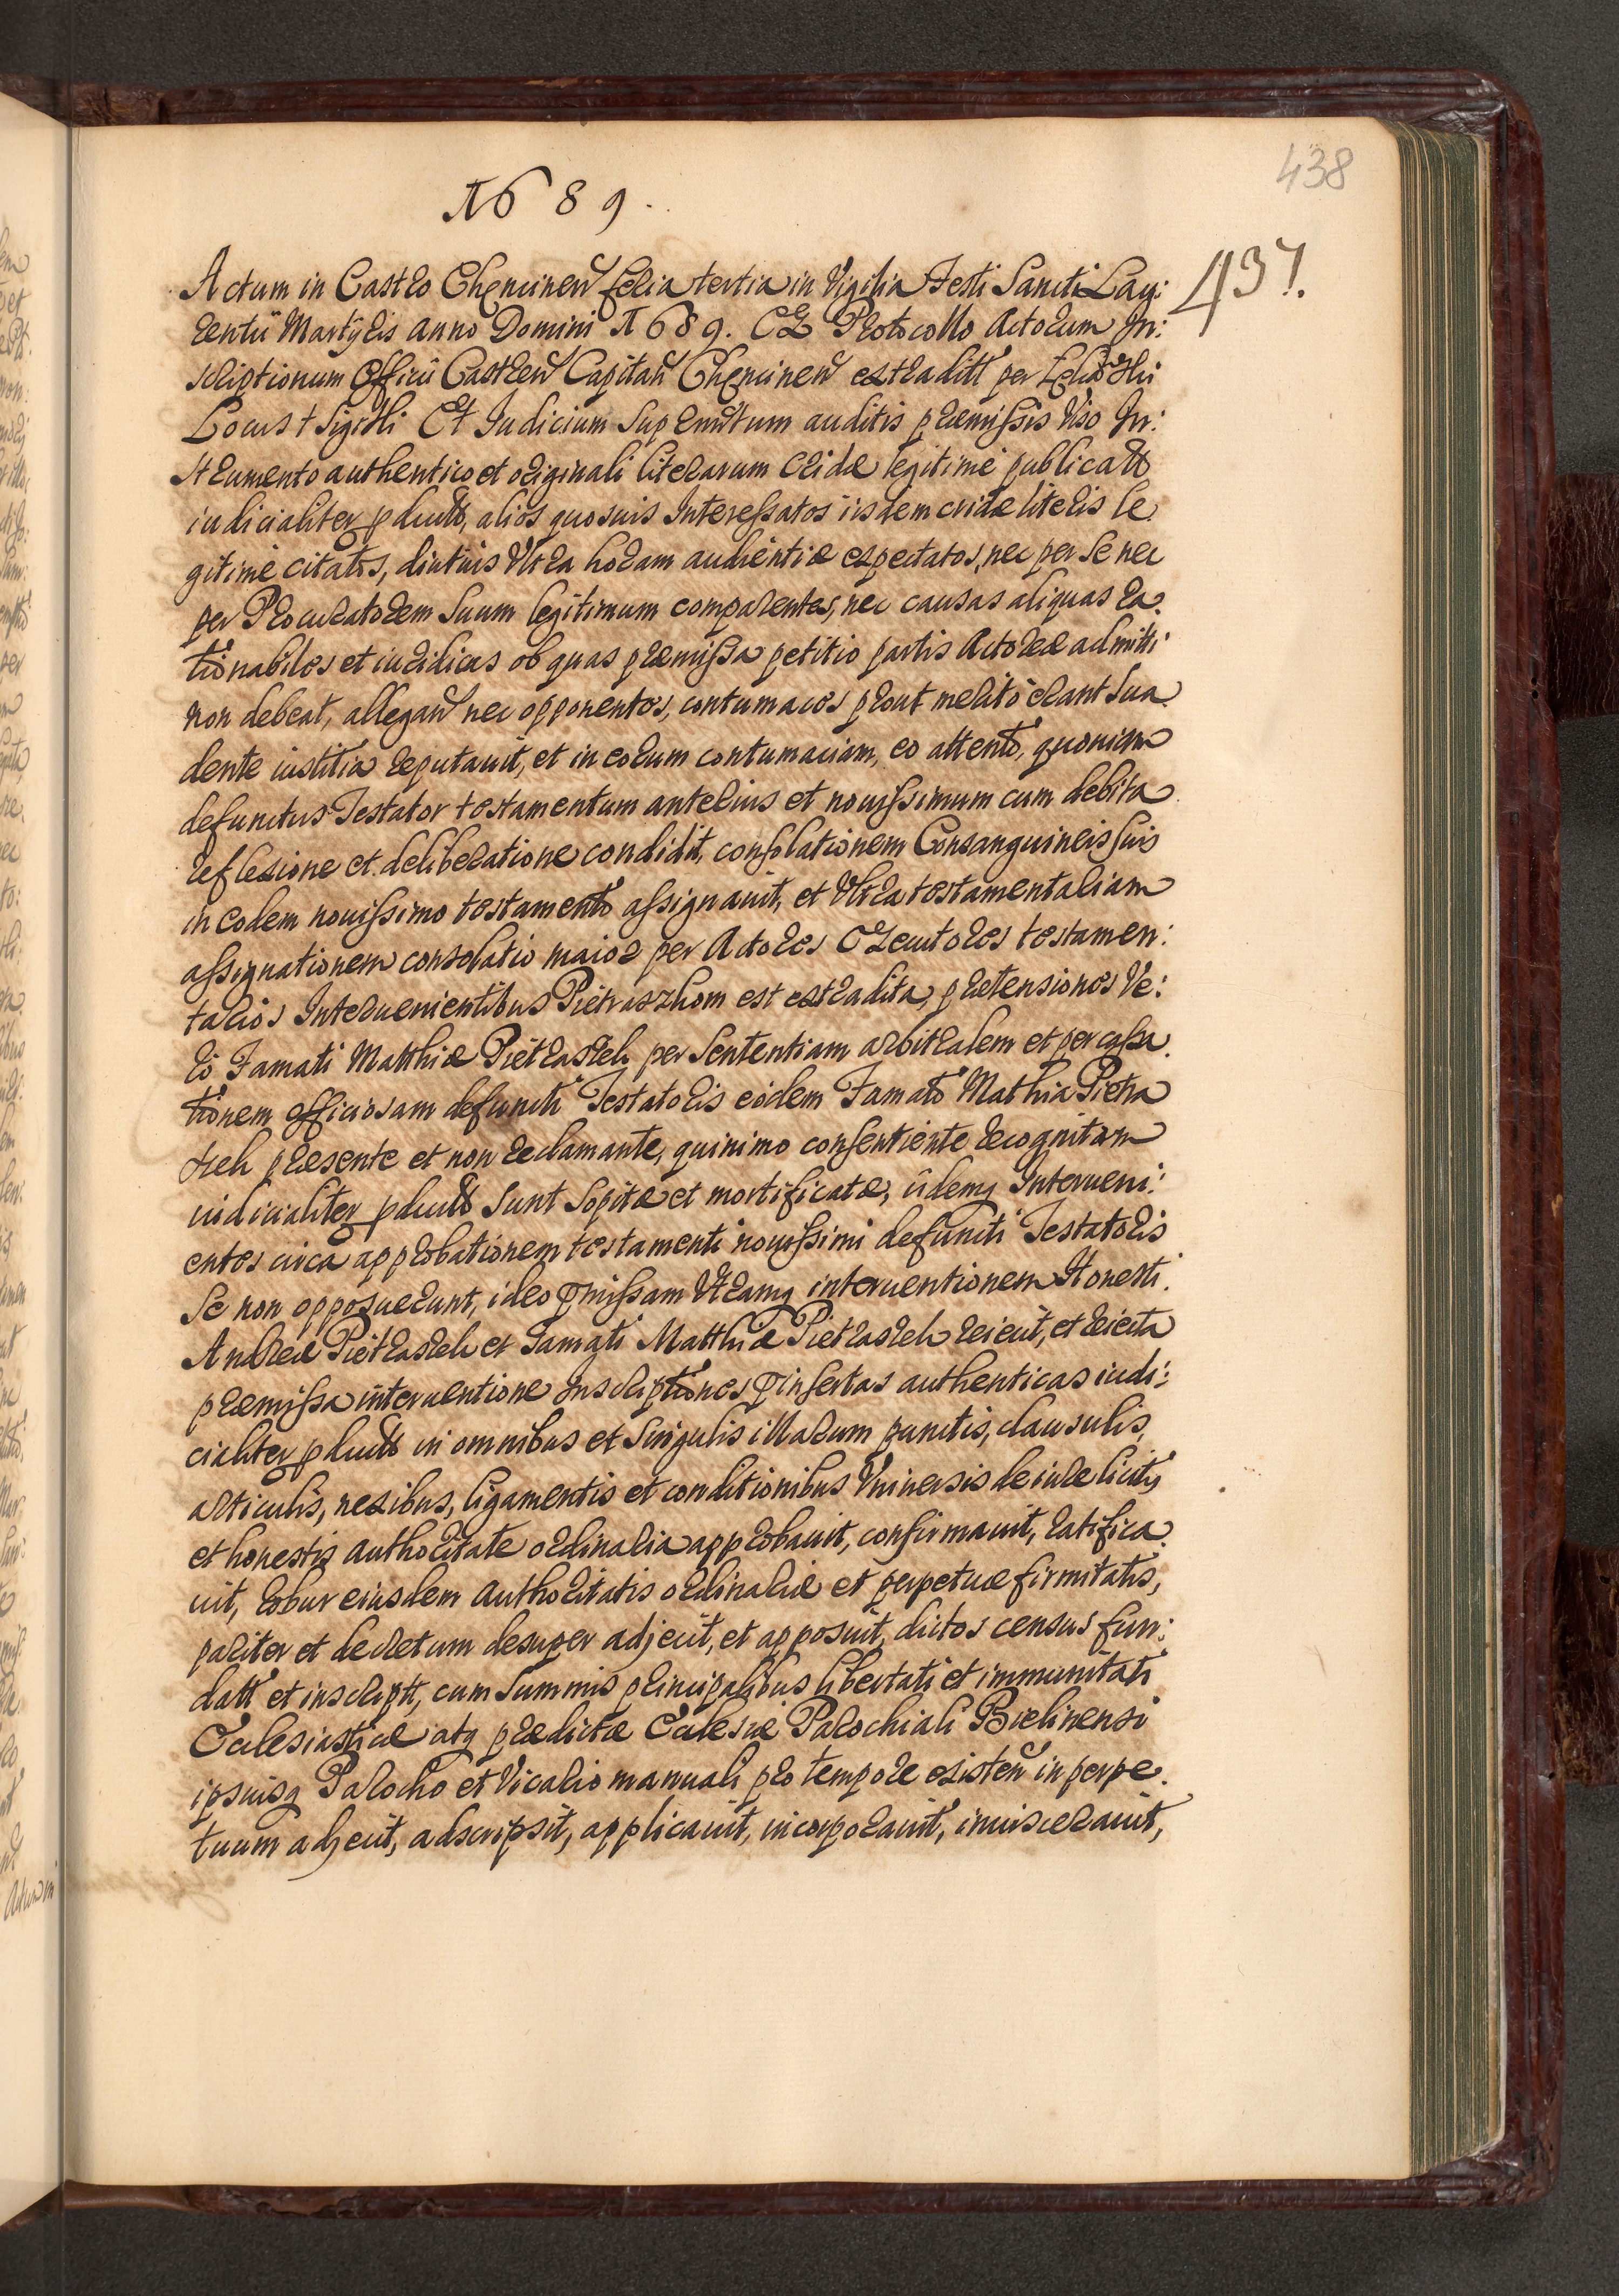 438
1689.
437.
Actum in Castro Chencinen feria tertia in Vigilia Festi Sancti Lau:
rentii Martyris Anno Domini 1689. Ex Protocollo Actorum In:
scriptionum Officii Castren Capitan Chencinen extraditt per
Locus + Sigilli Et Iudicium Supranotum auditis præmissis Viso In:
strumento authentico et originali literarum Cridæ legitime publicatt
iudicialiter pduct, alios quosuis Interessatos iisdem cridæ literis le
gitime citatos, diutius Vltra horam audientiæ expectatos, nec per se nec
per Procuratorem suum legitimum comparentes, nec causas aliquas ra:
tionabiles et iuridicas ob quas præmissa petitio partis Actoreæ admitti
non debeat, allegan nec opponentes, contumaces prout meriti erant sua
dente iustitia reputauit, et in eorum contumaciam, eo attento, quoniam
defunctus Testator testamentum anterius et nouissimum cum debita
reflexione et deliberatione condidit, consolationem Consanguineis suis
in eodem nouissimo testamento assignauit, et Vltra testamentaliam
assignationem consolatio maior per Actores Executores testamen:
tarios Interuenientibus Pietraszkom est extradita, prætensiones Ve:
ro Famati Matthiæ Pietraszek per Sententiam arbitralem et per cassa
tionem officiosam defuncti Testatoris eidem Famato Mathia Pietra
szek præsente et non reclamante, quinimo consentiente recognitam
iudicialiter pduct sunt sopitæ et mortificatæ, iidemq Interueni:
entes circa approbationem testamenti nouissimi defuncti Testatoris
se non opposuerunt, ideo pmissam Vtramq interuentionem Honesti
Andreæ Pietraszek et Famati Matthiæ Pietraszek reiecit, et reiecta
præmissa interuentione Inscriptiones pinsertas authenticas iudi:
cialiter pduct in omnibus et singulis illarum punctis, clausulis,
articulis, nexibus, ligamentis et conditionibus Vniuersis de iure licitis
et honestis authoritate ordinaria approbauit, confirmauit, ratifica
uit, robur eiusdem authoritatis ordinariæ et perpetuæ firmitatis,
pariter et decretum desuper adjecit, et apposuit, dictos census fun:
datt et inscriptt, cum summis principalibus libertati et immunitati
Ecclesiasticæ atq prædictæ Ecclesiæ Parochiali Bielinensi
ipsiusq Parocho et Vicario manuali pro tempore existen in perpe
tuum adjecit, adscripsit, applicauit, incorporauit, inuiscerauit,